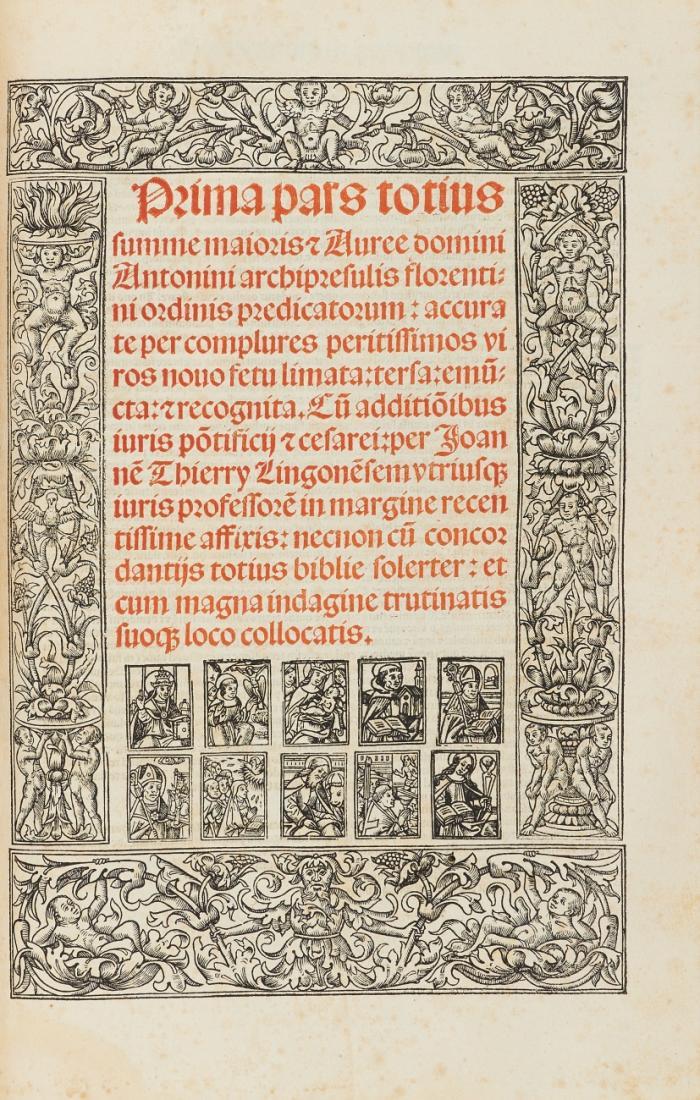 Prima pars totius
summe maioris ⁊ Auree domini
Antonini archipresulis florenti⸗
ni ordinis predicatorum : accura
te per complures peritissimos vi
ros nouo fetu limata:tersa:emū⸗
cta:⁊ recognita. Cū additiōibus
iuris pōtificij ⁊ cesarei:per Joan
nē Thierry Lingonēsem vtriusqꝫ
iuris professorē in margine recen
tissime affixis: necnon cū concor
dantijs totius biblie solerter : et
cum magna indagine trutinatis
suoqꝫ loco collocatis.